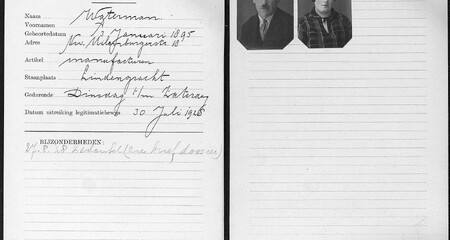 Naam Waterman
Voornamen
Geboortedatum 7 Januari 1895
Adres Nw. Uilenburgerstr. 18
Artikel: manufacturen
Staanplaats Lindengracht
Gedurende Dinsdag t/m Zaterdag
Datum uitreiking legitimatiebewijs 30 Juli 1926
BIJZONDERHEDEN:
27.8.28